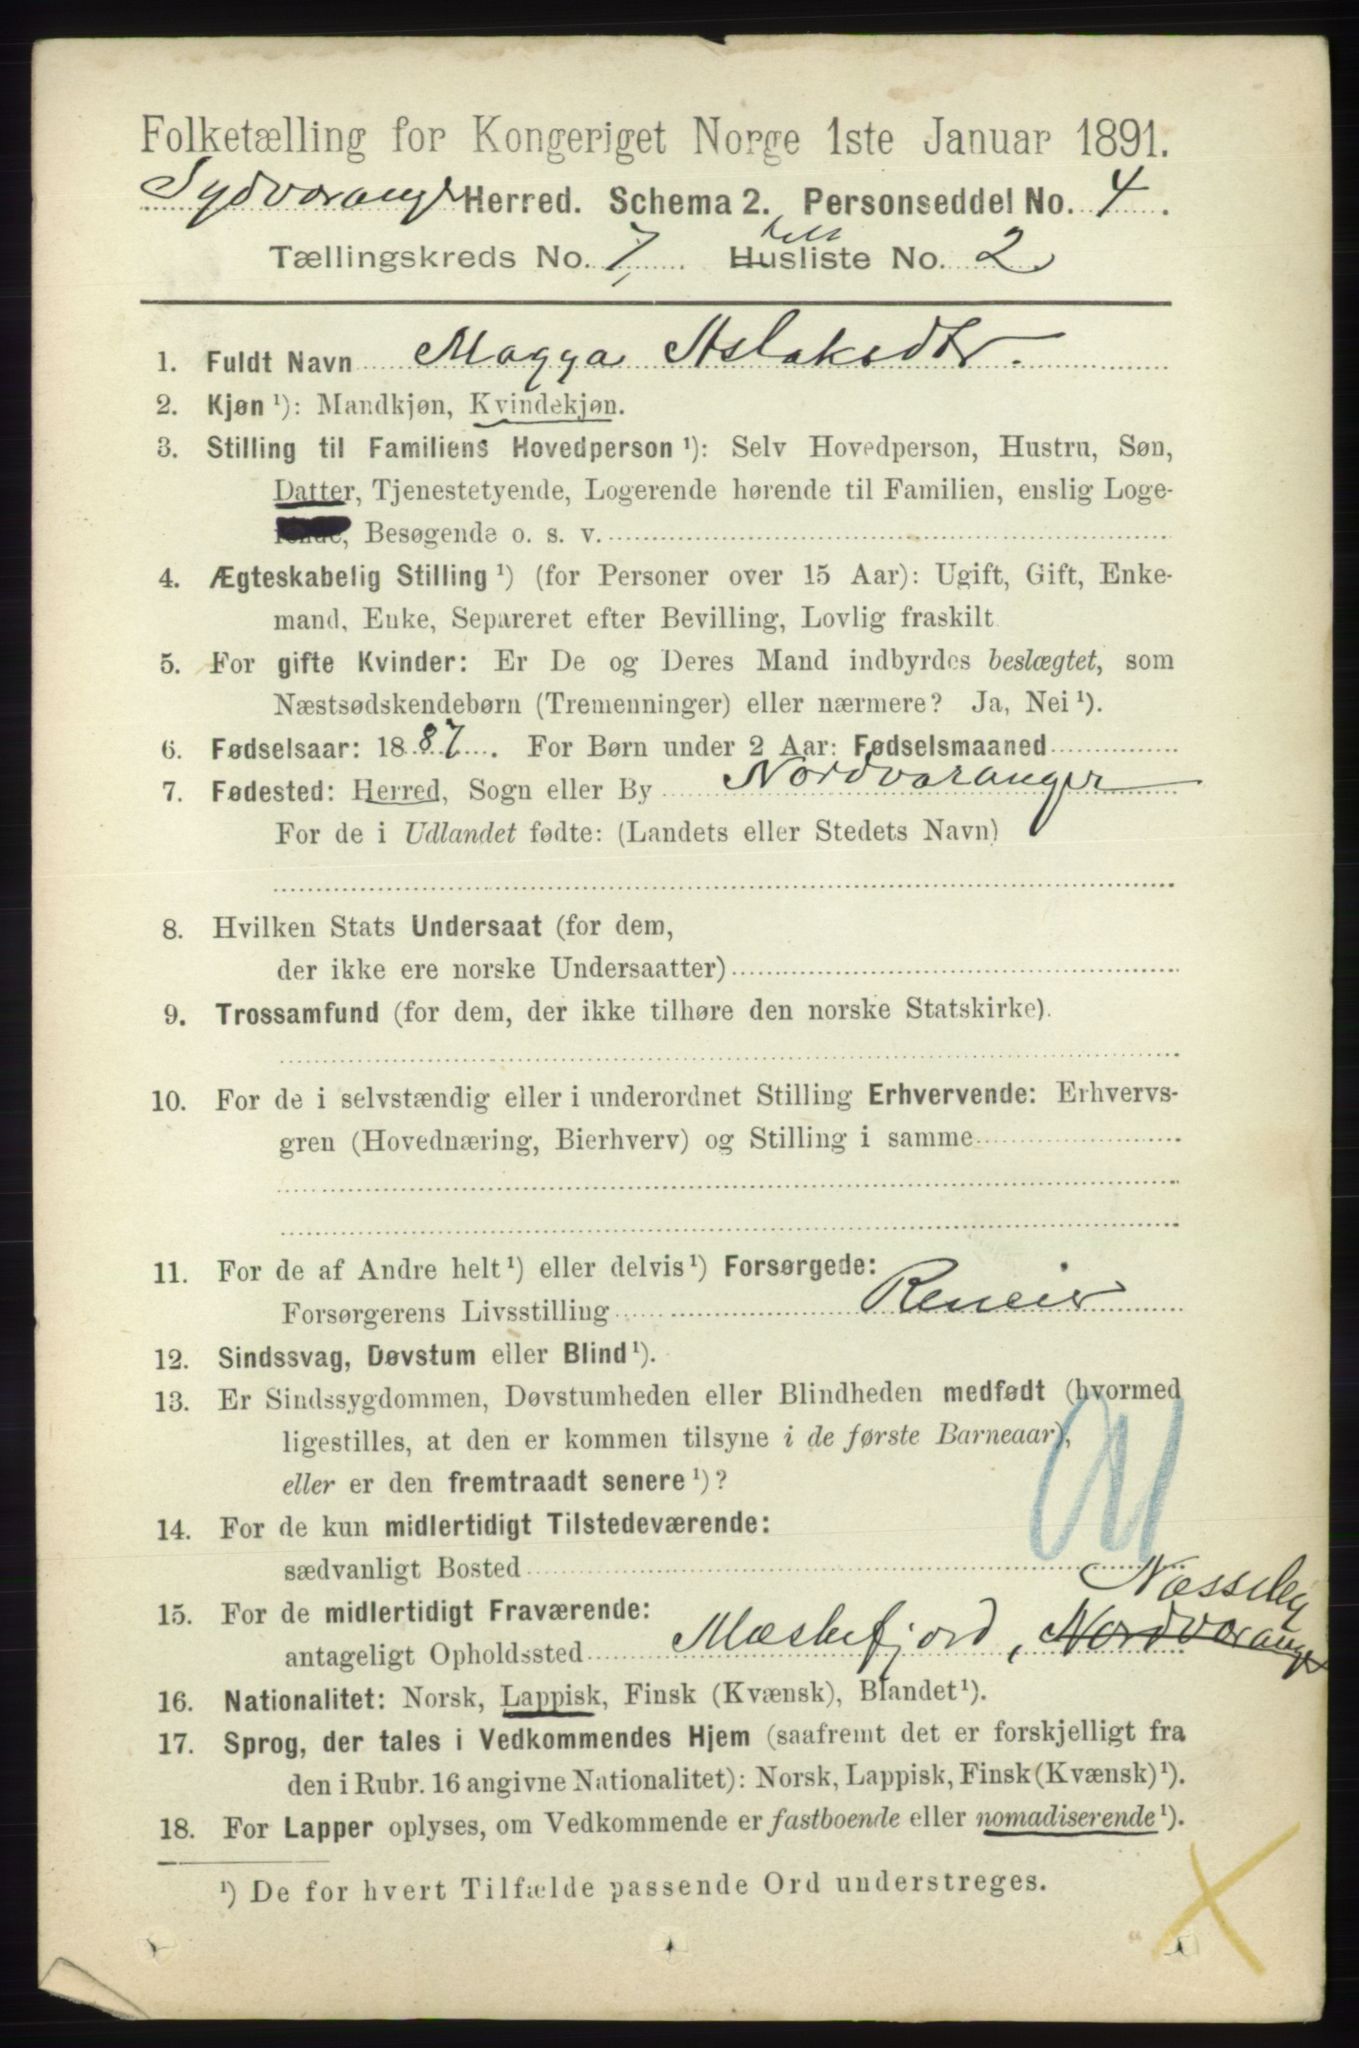 Folketælling for Kongeriget Norge 1ste Januar 1891.
Sydvaranger Herred. Schema 2. Personseddel No. 4.
telt
Tællingskreds No. 7, Husliste No. 2.
1. Fuldt Navn Magga Aslaksdtr.
2. Kjøn ¹): Mandkjøn, Kvindekjøn.
3. Stilling til Familiens Hovedperson ¹): Selv Hovedperson, Hustru, Søn,
Datter, Tjenestetyende, Logerende hørende til Familien, enslig Loge-
rende, Besøgende o. s. v.
4. Ægteskabelig Stilling ¹) (for Personer over 15 Aar): Ugift, Gift, Enke-
mand, Enke, Separeret efter Bevilling, Lovlig fraskilt
5. For gifte Kvinder: Er De og Deres Mand indbyrdes beslægtet, som
Næstsødskendebørn (Tremenninger) eller nærmere? Ja, Nei ¹).
6. Fødselsaar: 1887. For Børn under 2 Aar: Fødselsmaaned
7. Fødested: Herred, Sogn eller By Nordvaranger
For de i Udlandet fødte: (Landets eller Stedets Navn)
8. Hvilken Stats Undersaat (for dem,
der ikke ere norske Undersaatter)
9. Trossamfund (for dem, der ikke tilhøre den norske Statskirke).
10. For de i selvstændig eller i underordnet Stilling Erhvervende: Erhvervs-
gren (Hovednæring, Bierhverv) og Stilling i samme
11. For de af Andre helt ¹) eller delvis ¹) Forsørgede:
Forsørgerens Livsstilling Reneier
12. Sindssvag, Døvstum eller Blind ¹).
13. Er Sindssygdommen, Døvstumheden eller Blindheden medfødt (hvormed
ligestilles, at den er kommen tilsyne i de første Barneaar),
eller er den fremtraadt senere ¹)?
14. For de kun midlertidigt Tilstedeværende:
sædvanligt Bosted
Nesseby
15. For de midlertidigt Fraværende:
antageligt Opholdssted Mæskefjord, Nordvaranger
16. Nationalitet: Norsk, Lappisk, Finsk (Kvænsk), Blandet ¹).
17. Sprog, der tales i Vedkommendes Hjem (saafremt det er forskjelligt fra
den i Rubr. 16 angivne Nationalitet): Norsk, Lappisk, Finsk (Kvænsk) ¹).
18. For Lapper oplyses, om Vedkommende er fastboende eller nomadiserende ¹).
¹) De for hvert Tilfælde passende Ord understreges.